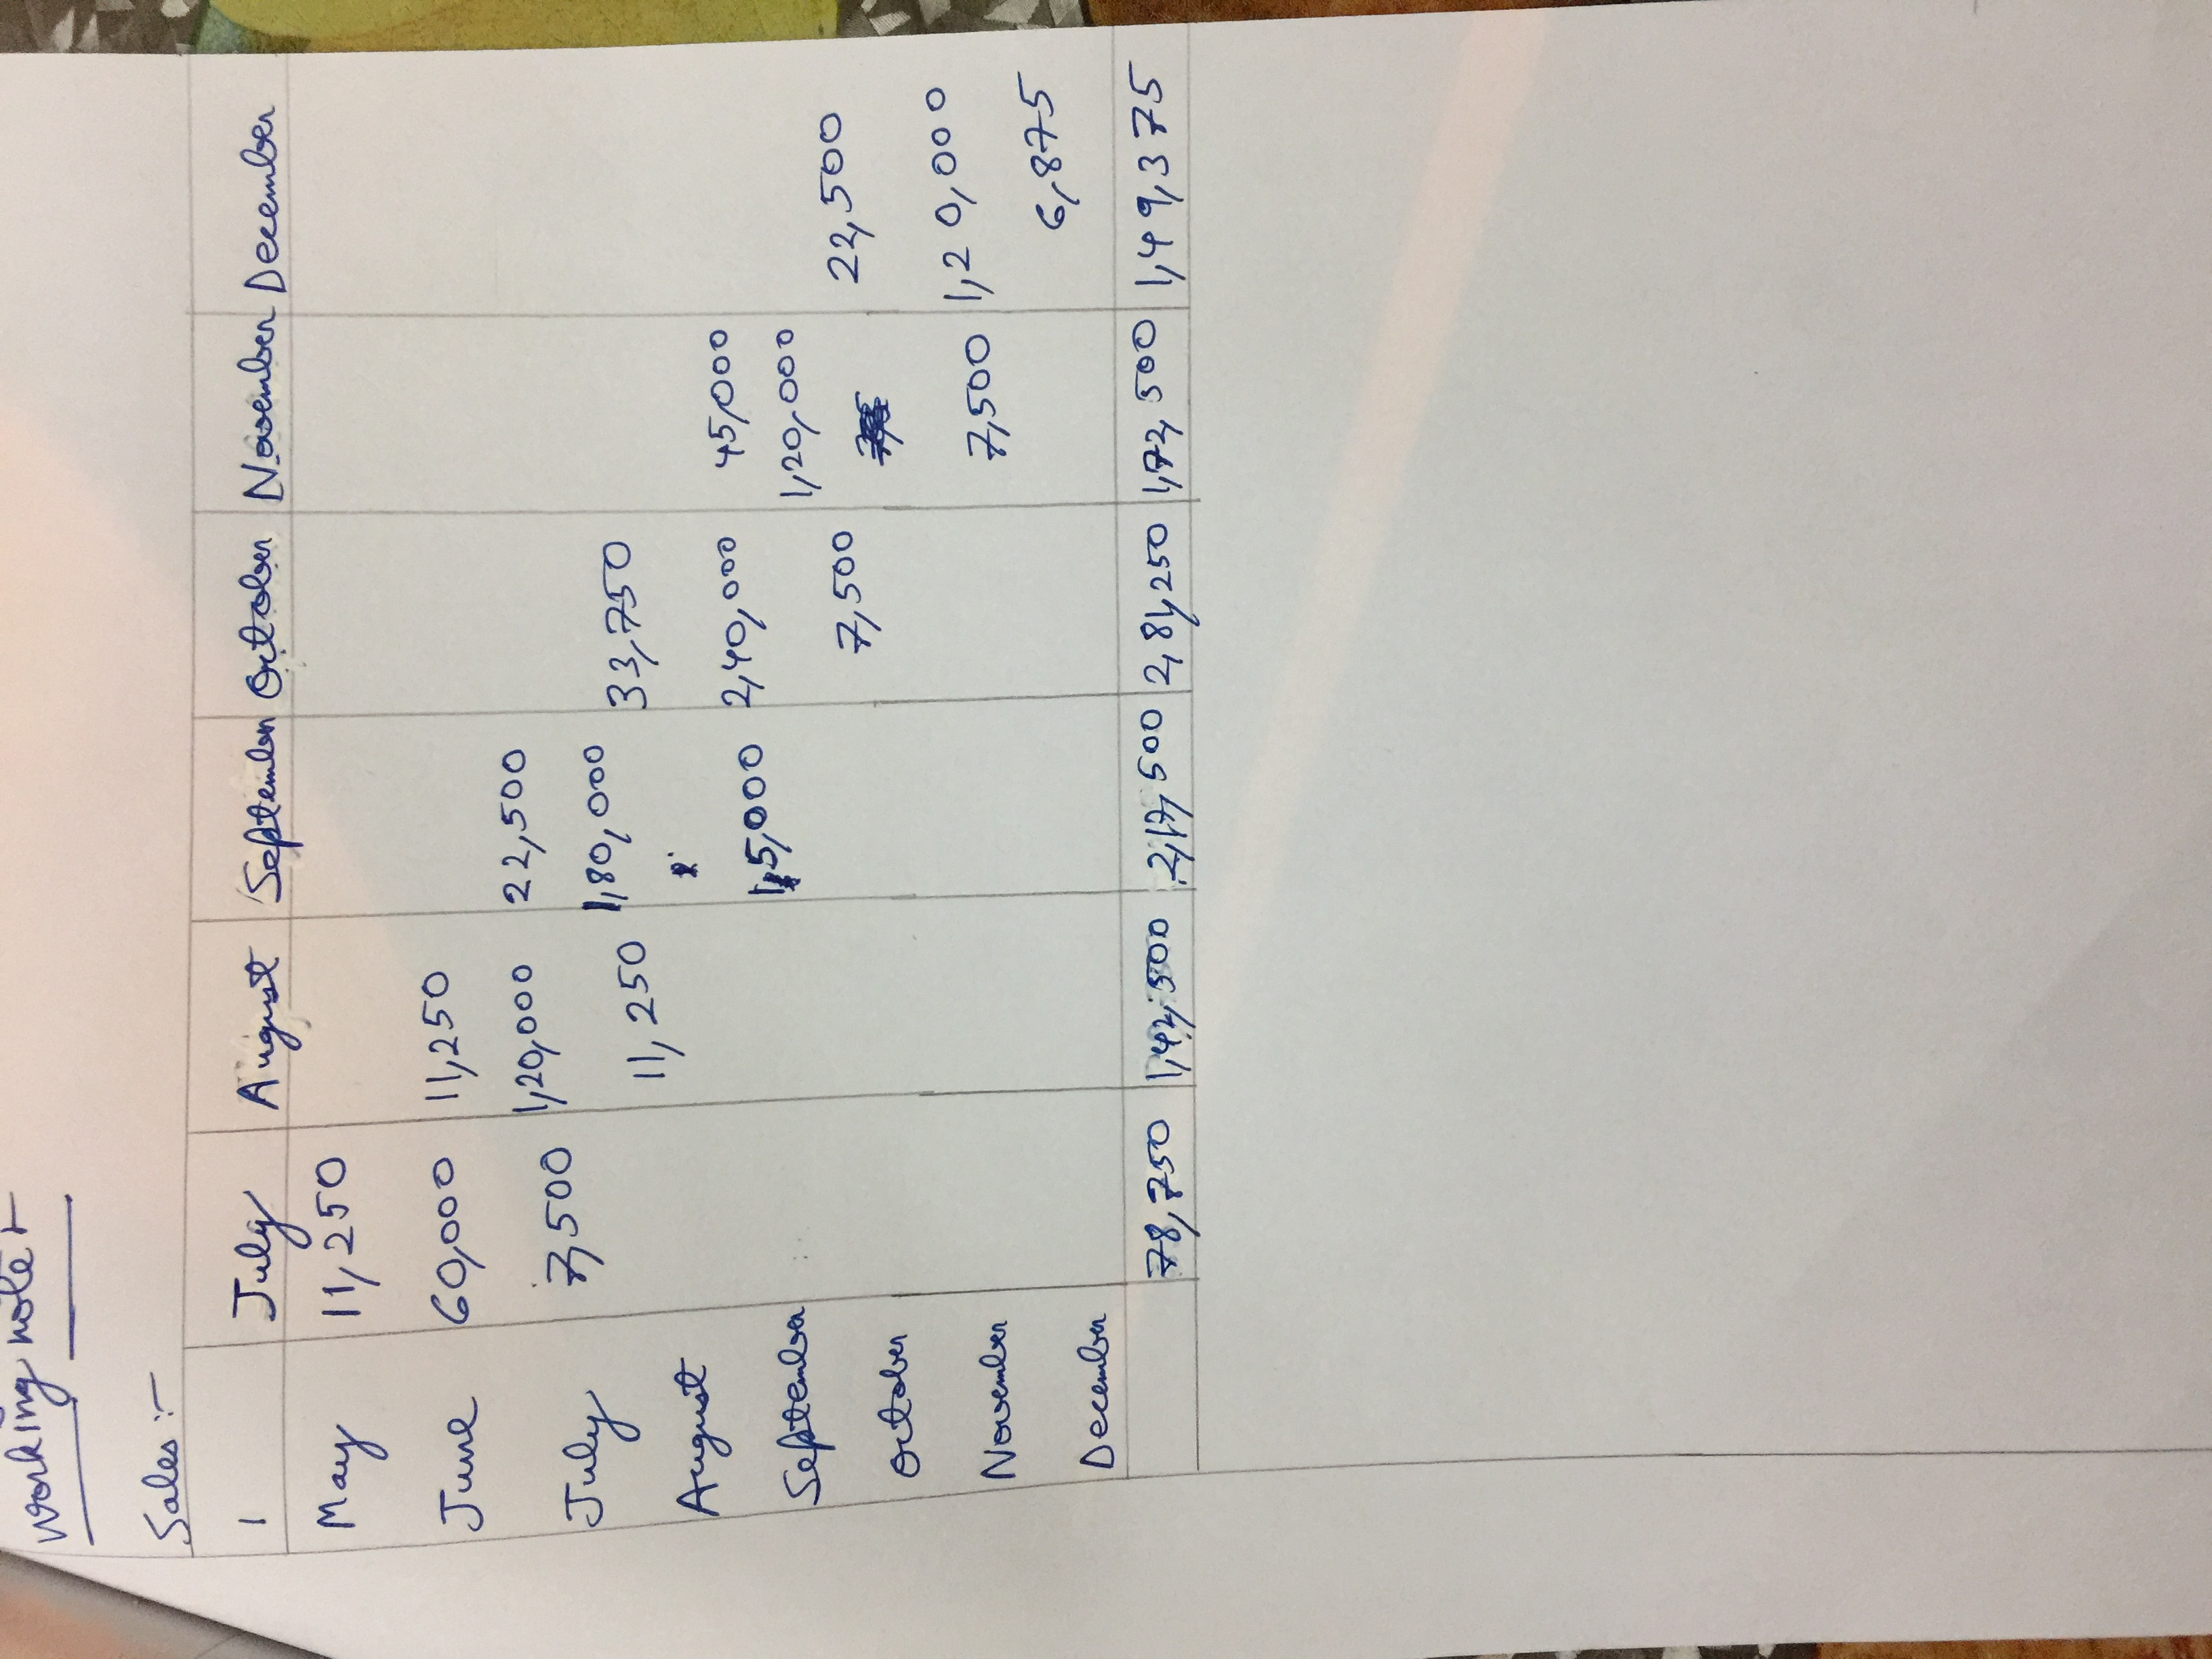 Working note:-
Sales :-
1 July August September October November December
May 11,250
June 60,000 11,250
July 7,500 1,20,000 22,500
August 11,250 1,80,000 33,750
September 15,000 2,40,000 45,000
October 7,500 1,20,000 22,500
November 7,500 1,20,000
December 6,875
78,750 1,42,500 2,17,500 2,81,250 1,72,500 1,49,375